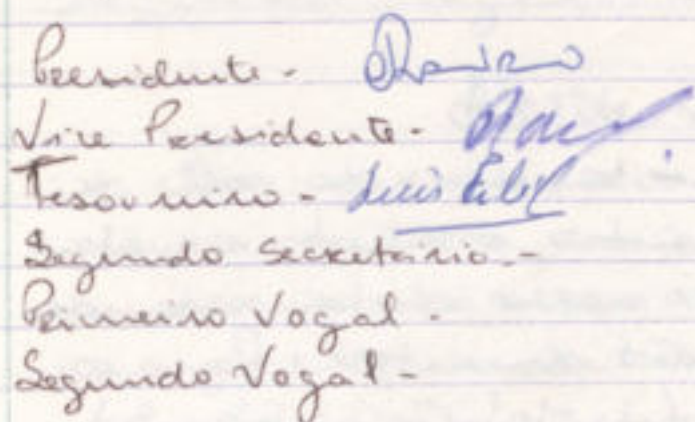 Presidente -
Vice Presidente -
Tesoureiro - Luis
Segundo secretário. -
Primeiro Vogal -
Segundo Vogal -